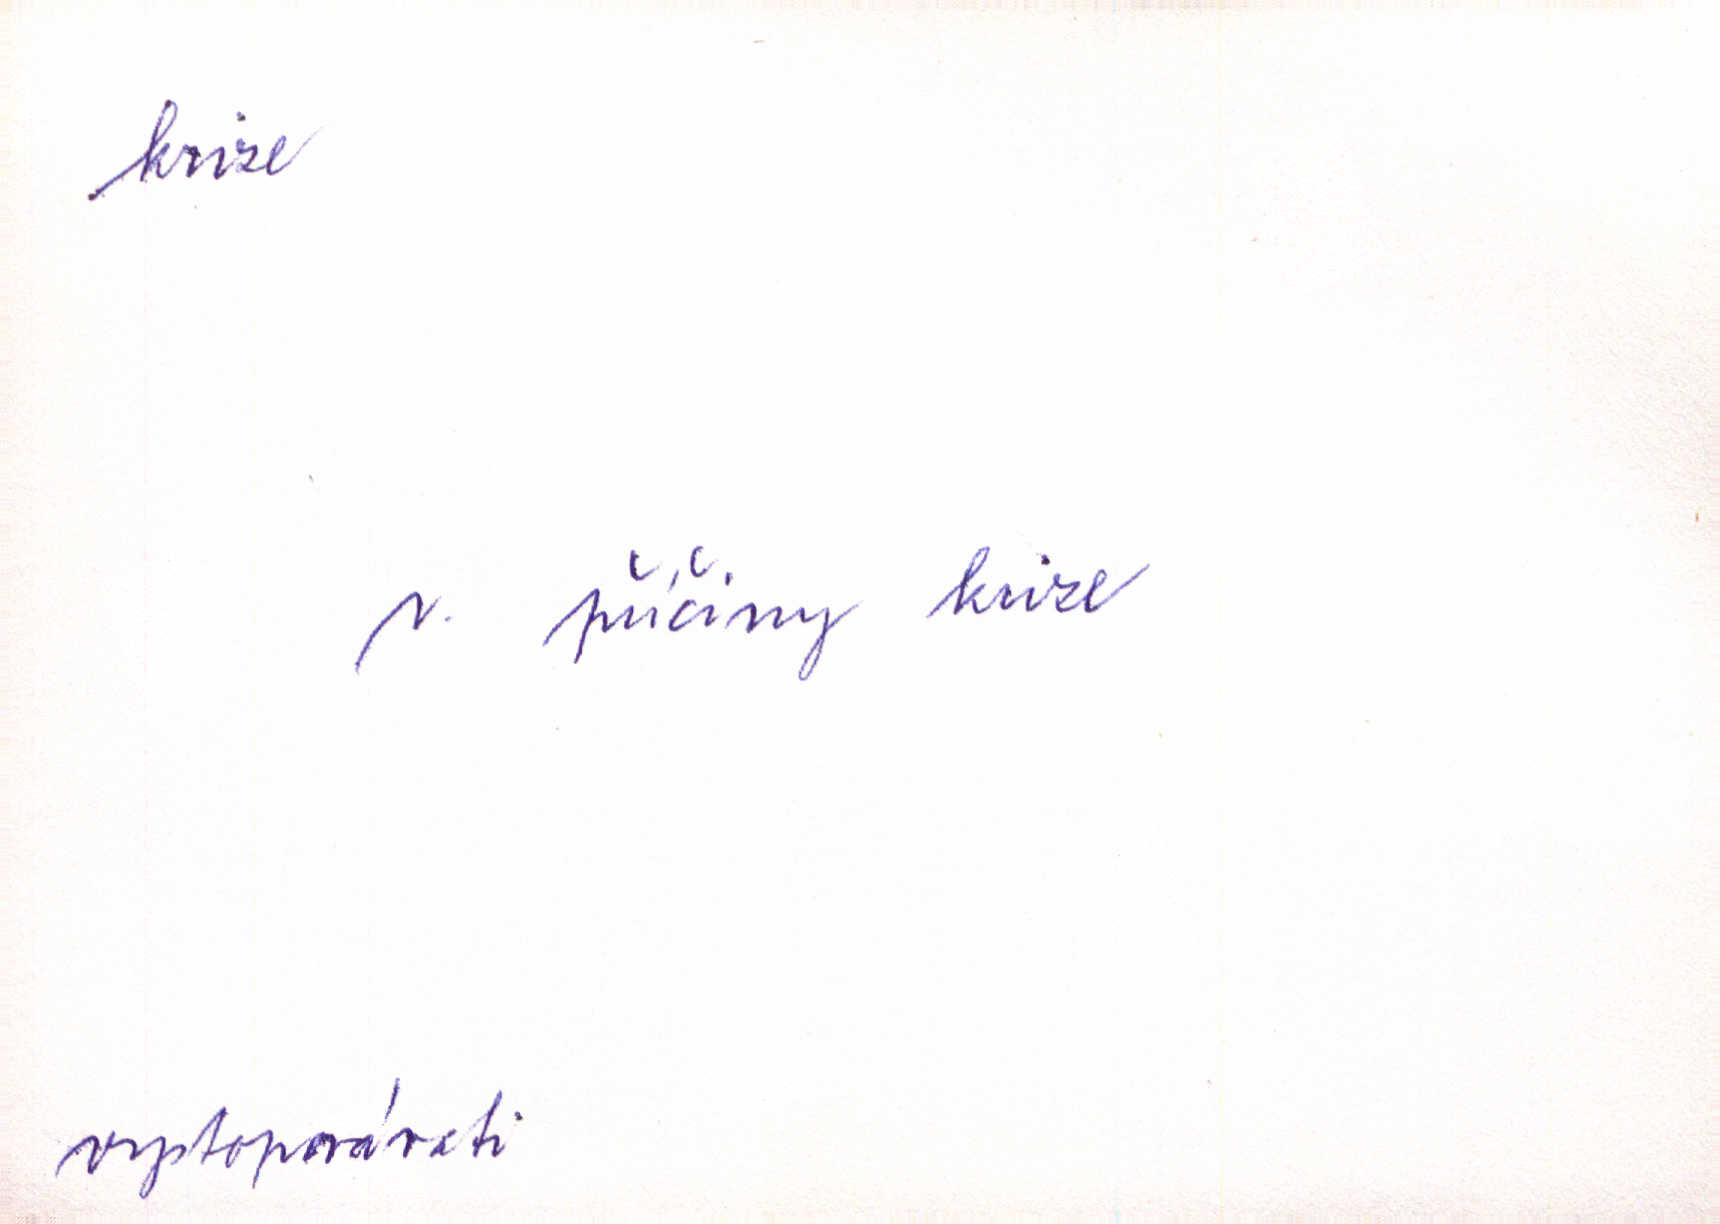 krize
v. příčiny krize
vystopovávati